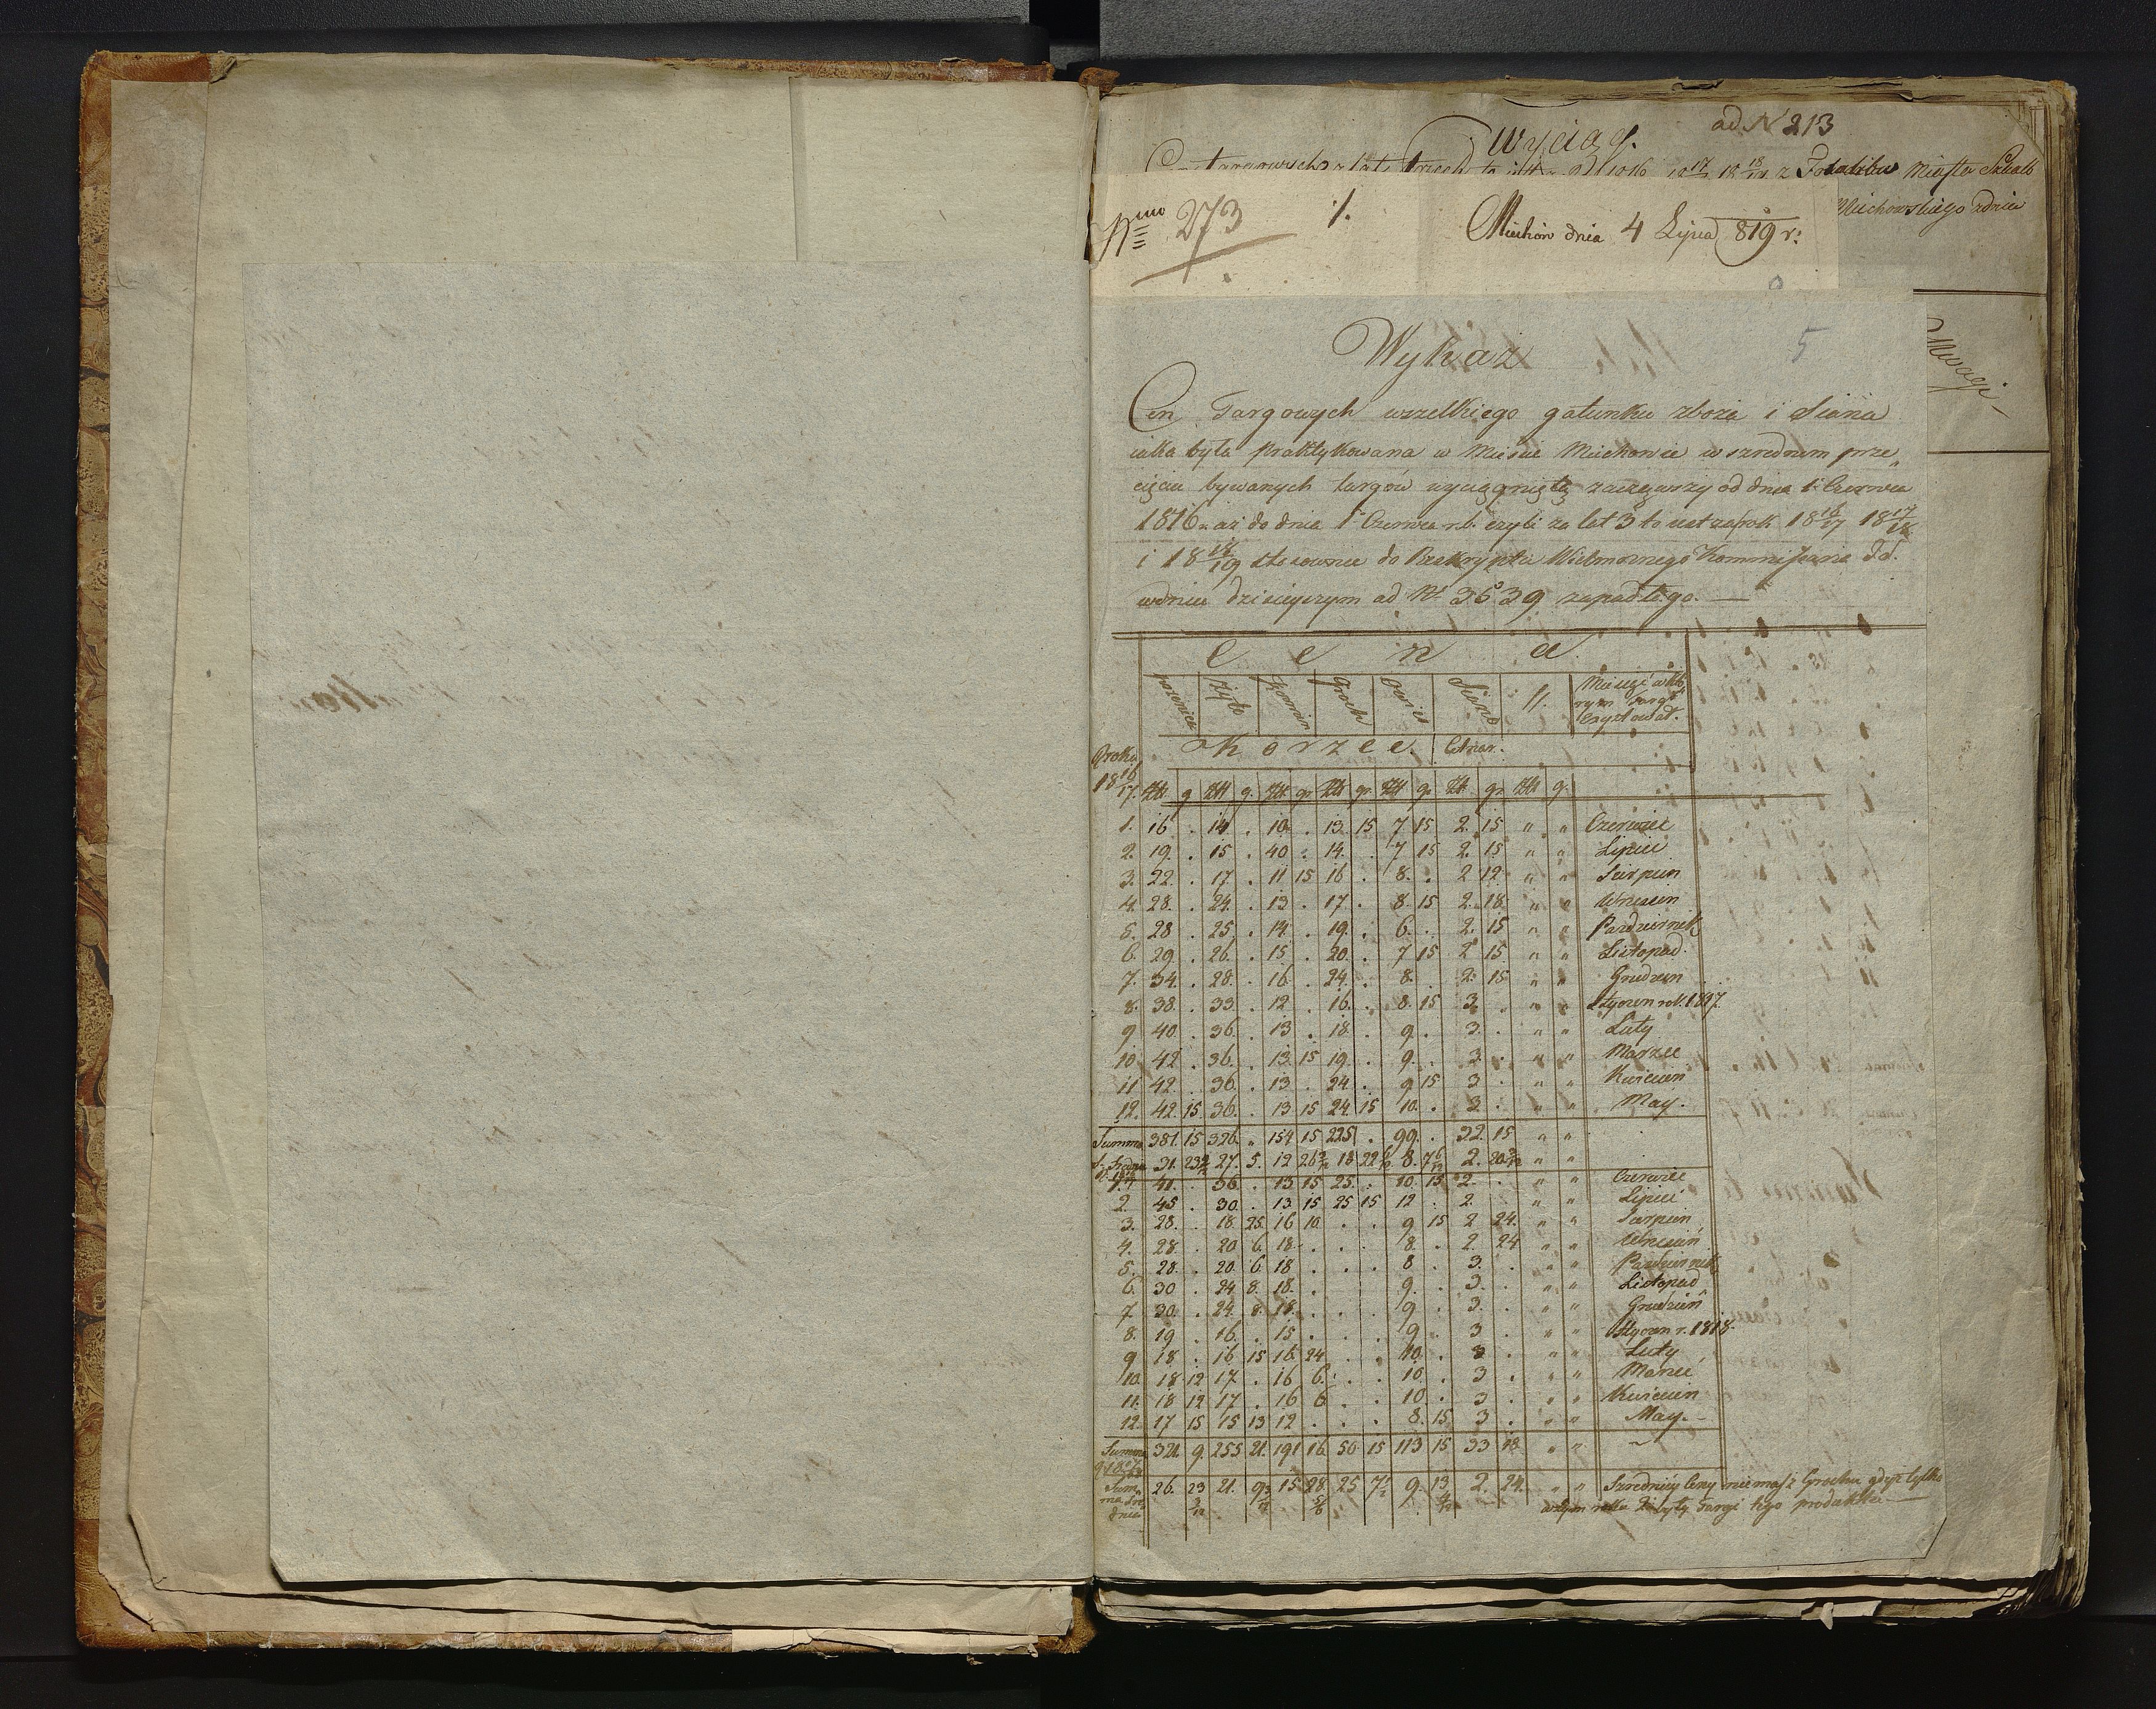 ad N 213
Wyciąg.
Miasta Skalb
Miechowskiego z dnia
Nro 273 1. Miechów dnia 4 Lipca 819 r:
Uwagi
5
Wykaz
Cen Targowych wszelkiego gatunku zboża i Siana
iaka była praktykowana w Mieście Miechowie w szrednim prze„
cięciu bywanych targów wyciągnięta zacząwszy od dnia 1. Czerwca
1816 r. aż do dnia 1 Czerwca r.b. czyli za lat 3 to iest za rok 18 16/17 18 17/18
i 18 18/19 stosownie do Reskryptu Wielmożnego Kommissarza
w dniu dzisieyszym ad Nr 3639 zapadłego. —
Cena
pszenica Żyto Jęczmień Groch Owies Siano //. Miesiąc w któ„
rym Targ
exystował.
Korzec. Cetnar.
Roku
18 16/17. Złt g Złt g. Złt gr Złt gr. Złt gr Złt. gr Złt g.
1. 16 . 14 . 10 . 13. 15 7 15 2. 15 „ „ Czerwiec
2. 19. . 15 . 10 . 14. . 7 15 2. 15 „ „ Lipiec
3. 22. . 17 . 11 15 16 . 8. . 2 12 „ „ Sierpień
4. 28. . 24. . 13 . 17 . 8. 15 2. 18 „ „ Wrzesień
5. 28 . 25. . 14. . 19. . 6. . 2. 15 „ „ Pazdziernik
6. 29. . 26. . 15 . 20. . 7 15 2 15 „ „ Listopad.
7. 34. . 28. . 16 . 24. . 8. . 2. 15 „ „ Grudzien
8. 38. . 33. . 12 . 16. . 8. 15 3. . „ „ Styczen rok. 1817.
9 40. . 36. . 13 . 18. . 9. . 3. . „ „ Luty
10. 42. . 36. . 13. 15 19. . 9. . 3. . „ „ Marzec
11 42. . 36. . 13 . 24. . 9 15 3 . „ „ Kwiecień
12. 42. 15 36. . 13 15 24. 15 10. . 3. . „ „ May.
Summa 381. 15 326. „ 154 15 225 . 99. . 32. 15 „ „
31. 23 27. 5. 12 26 18 22 8. 7 2. 20 „ „
1. 41. . 36 . 13 15 25. . 10. 15 2. . „ „ Czerwiec
2. 45 . 30. . 13. 15 25 15 12 . 2. „ „ Lipiec
3. 28. . 18. 25. 16 10 . . 9 15 2 24. „ „ Sierpień
4. 28. . 20 6. 18. . . . 8. . 2. 24 „ „ Wrzesień
5. 28. . 20. 6 18 . . . 8 . 3. . „ „ Pazdziernik
6. 30 . 24 8. 18. . . 9. . 3. . „ „ Listopad
7. 30. . 24. 8. 18. . . . 9 . 3. . „ „ Grudzień
8. 19 . 16. . 15 . . . 9 . 3 . „ „ Styczen r. 1818.
9 18 . 16 15 16. 24 . . 10. . 3 . „ „ Luty
10. 18 12 17 . 16 6. . . 10 . 3 . „ „ Marzec
11. 18 12 17 . 16 6 . . 10. . 3 . „ „ Kwiecień
12. 17 15 15 13 12 . . . 8. 15. 3 . „ „ May. —
Summa 321. 9. 255 21. 191 16. 50 15 113 15 33 18 „ „ ~
Summa Sre
dnia 26. 23 21. 9 15 28 25 7 9. 13 2. 24. „ „ Szredniey Ceny niemasz Grochu gdyż tylko
w tym roku 2 były Targi tego produktu —